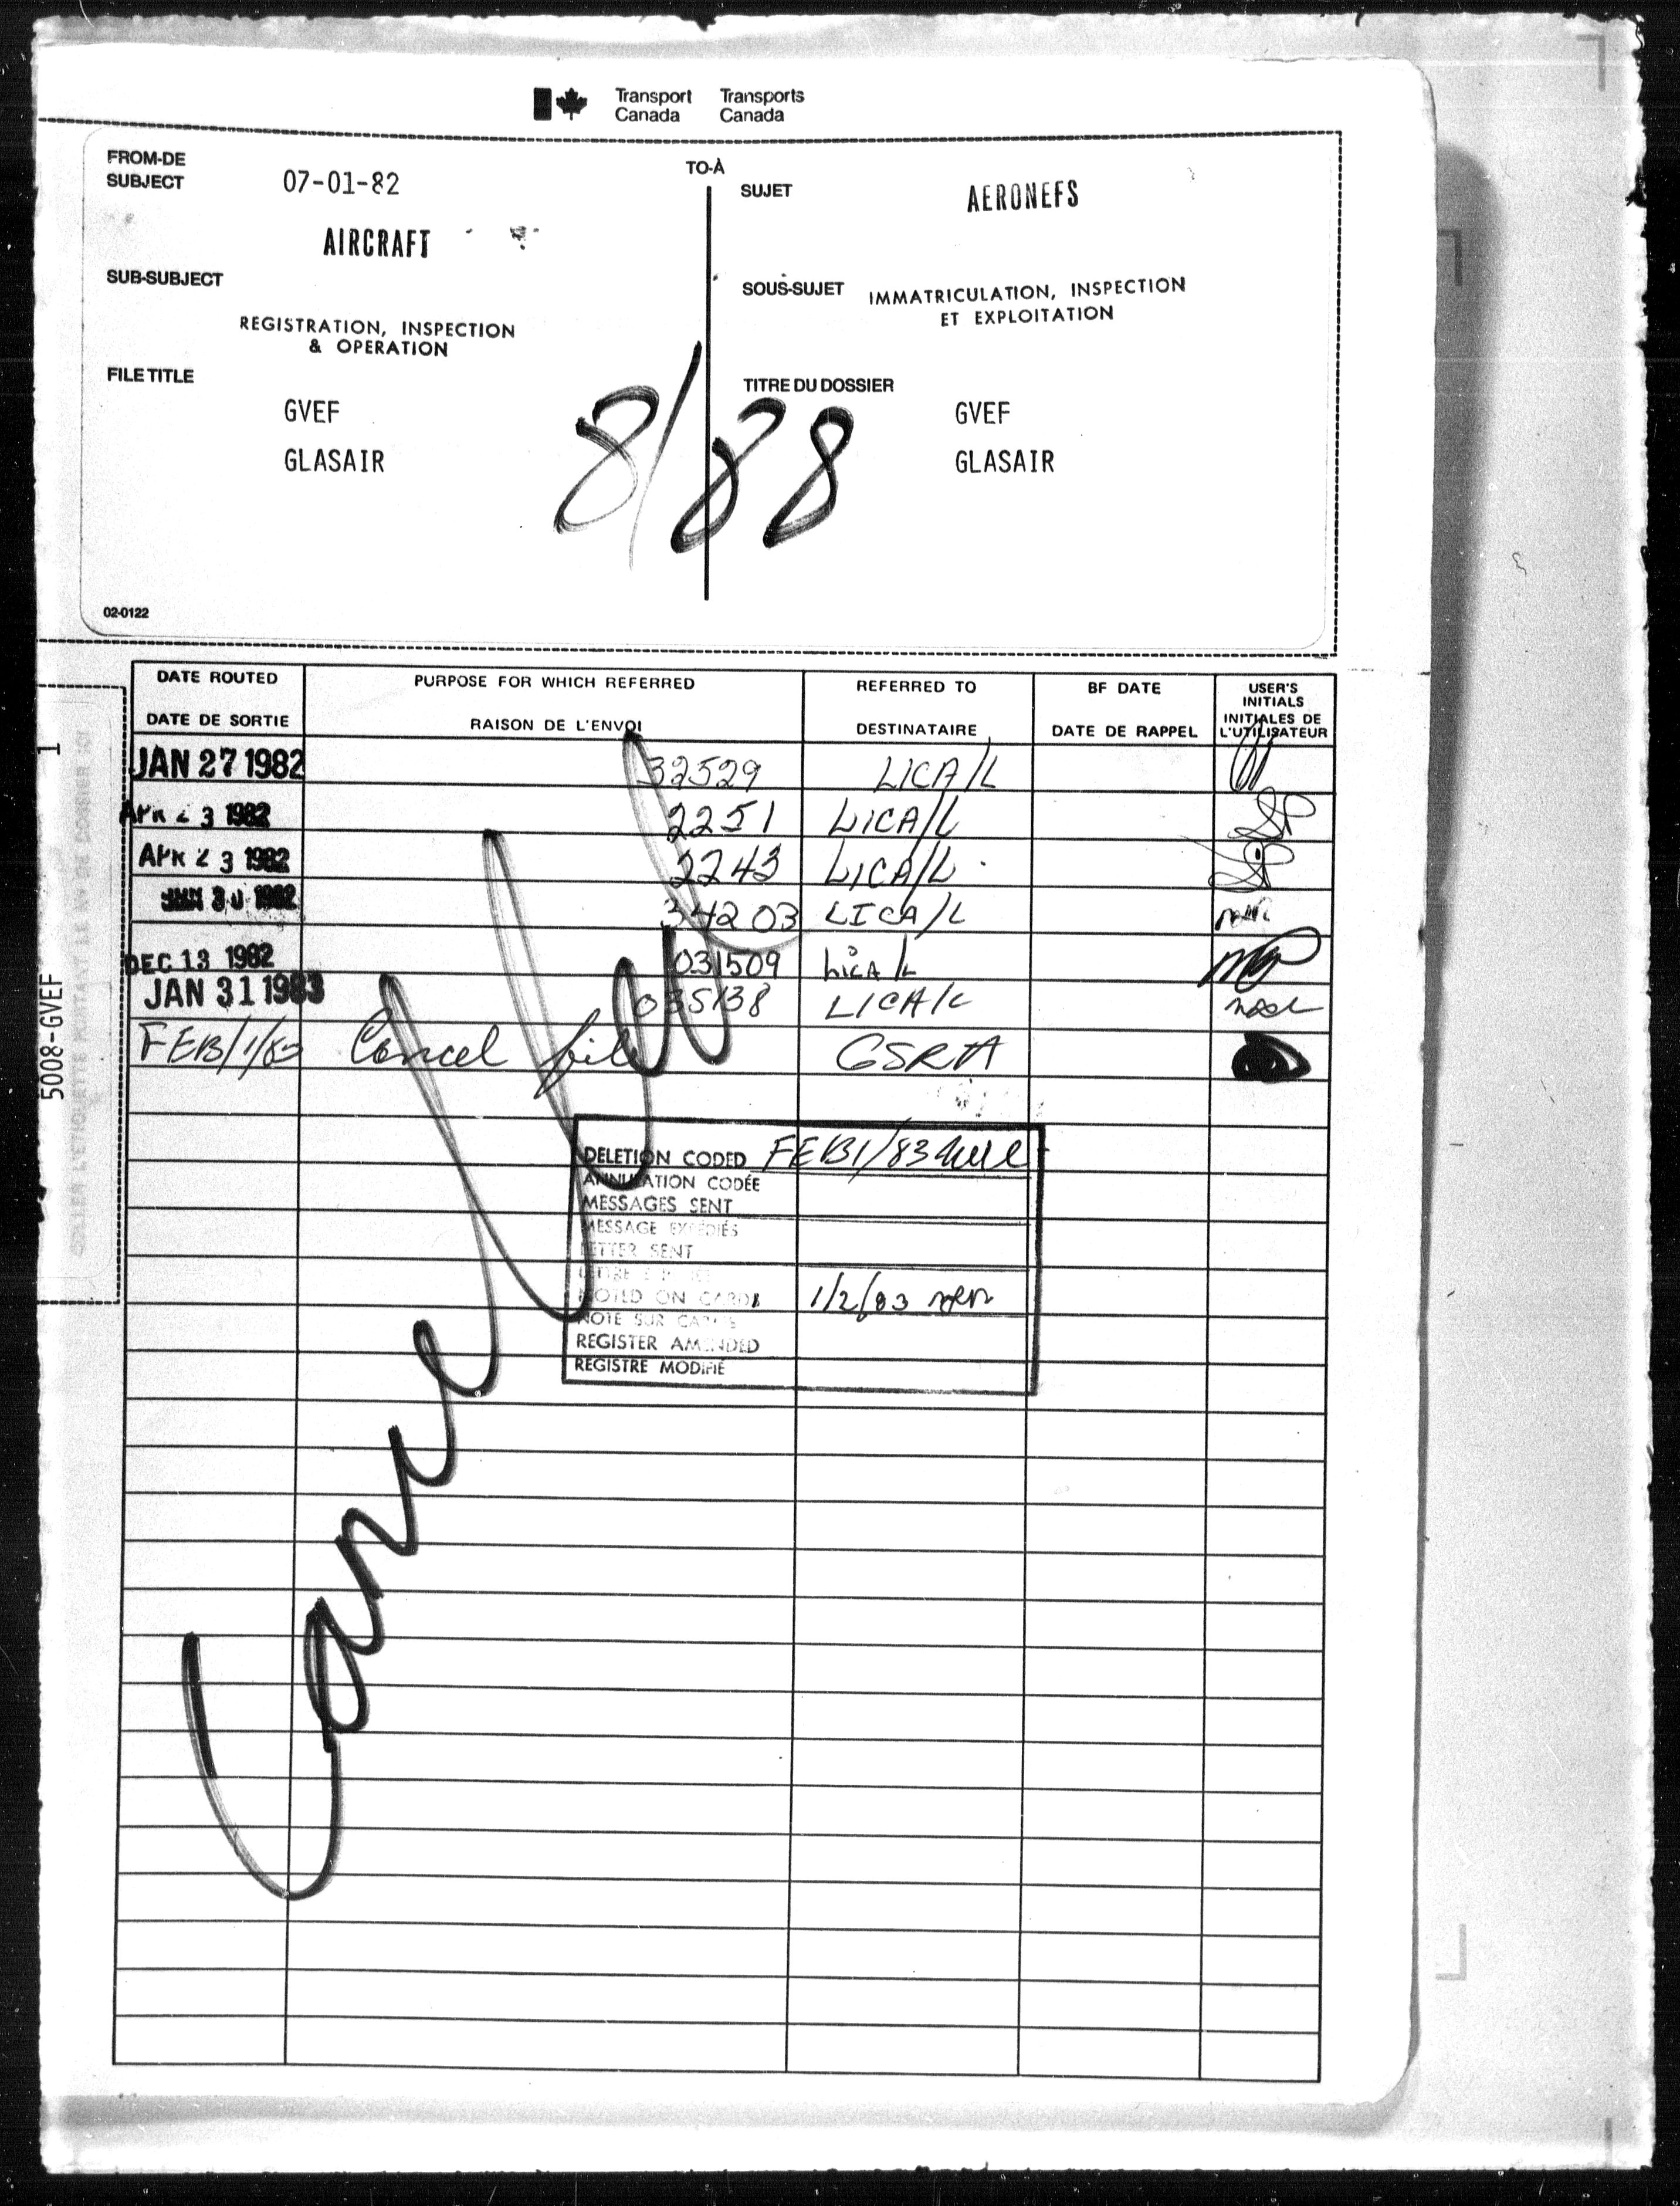 Transport Canada Transports Canada
FROM-DE TO-À
SUBJECT 07-01-82
AIRCRAFT
SUB-SUBJECT
REGISTRATION, INSPECTION
& OPERATION
FILE TITLE
GVEF
GLASAIR
SUJET AERONEFS
SOUS-SUJET IMMATRICULATION, INSPECTION
ET EXPLOITATION
TITRE DU DOSSIER
GVEF
GLASAIR
8/88
02-0122
DATE ROUTED PURPOSE FOR WHICH REFERRED REFERRED TO BF DATE USER'S INITIALS
DATE DE SORTIE RAISON DE L'ENVOI DESTINATAIRE DATE DE RAPPEL INITIALES DE L'UTILISATEUR
JAN 27 1982 32529 LICA/L
APR 23 1982 2251 LICA/L
APR 23 1982 2243 LICA/L
30 1982 34203 LICA/L
DEC 13 1982 031509 LICA/L
JAN 31 1983 035138 LICA/L
FEB/1/83 Cancel file CSRA
Cancelled
DELETION CODED FEB1/83
ANNULATION CODÉE
MESSAGES SENT
MESSAGE EXPÉDIÉS
LETTER SENT
NOTED ON CARDS 1/2/83
NOTE SUR CARTE
REGISTER AMENDED
REGISTRE MODIFIÉ
5008-GVEF 1